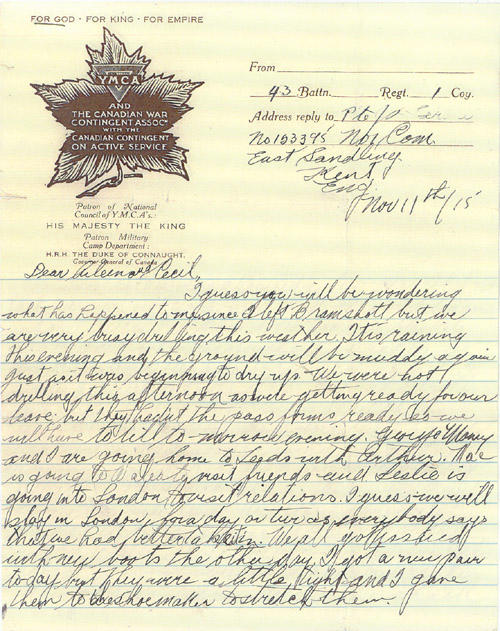 FOR GOD · FOR KING · FOR EMPIRE
YMCA
AND
THE CANADIAN WAR
CONTINGENT ASSOC'N
WITH THE
CANADIAN CONTINGENT
ON ACTIVE SERVICE
Patron of National
Council of Y.M.C.A's.:
HIS MAJESTY THE KING
Patron Military
Camp Department:
H.R.H. THE DUKE OF CONNAUGHT,
Governor General of Canada
From
43 Battn. Regt. 1 Coy.
Address reply to Pte
No 153395 No 1 Com.
East Sandling
Kent
Eng
Nov 11th/15
Dear Aileen and Cecil,
I guess you will be wondering
what has happened to me since I left Bramshott but we
are very busy drilling this weather. It is raining
this evening and the ground will be muddy again
just as it was beginning to dry up. We were not
drilling this afternoon as we were getting ready for our
leave but they had not the pass forms ready so we
will have to till to-morrow evening. George
and I are going home to Leeds with Arthur.
is going to visit friends and Leslie is
going into London to visit relations. I guess we will
stay in London for a day or two as everybody says
that we had better take it in. We all got issued
with new boots the other day. I got a new pair
to-day but they were a little tight and I gave
them to the shoemaker to stretch them.